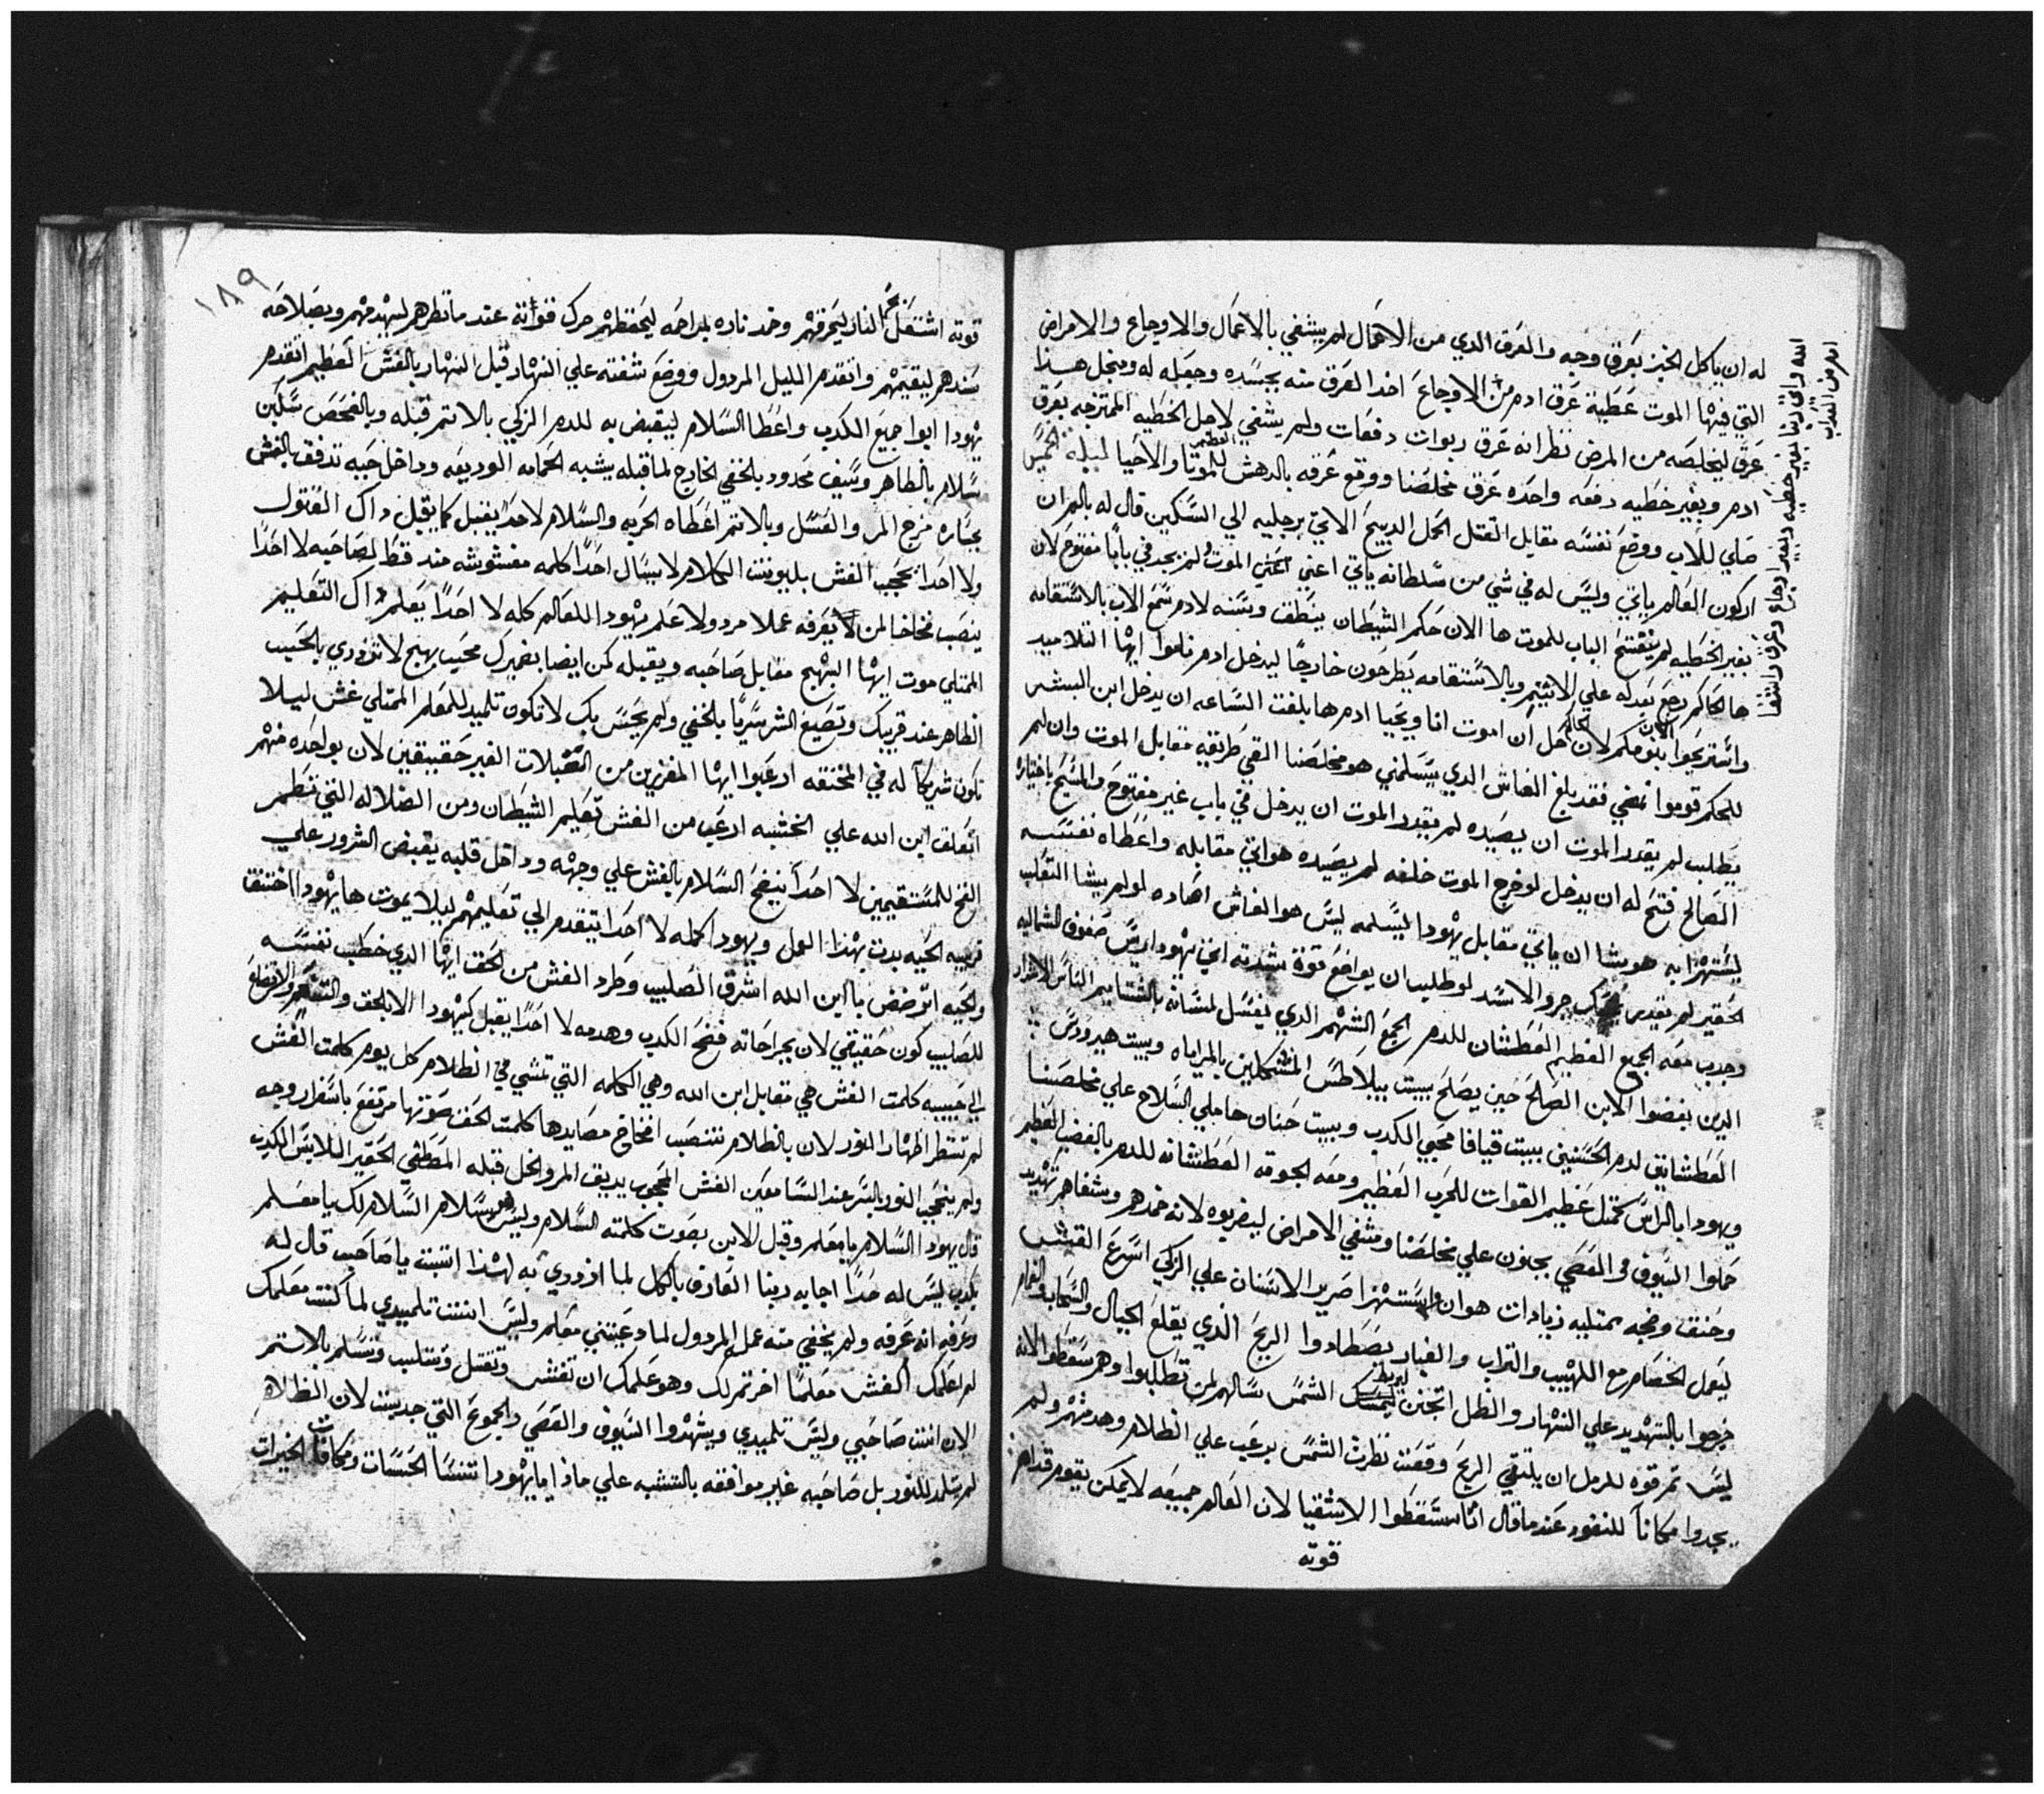 له ان ياكل الخبز بعرق وجه والعرق الدي من الاعمال لم يشفي بالاعمال والاوجاع والامراض
التي فيها الموت عطية عرق ادم من الاوجاع اخد العرق منه بجسده وجعله له ومنجل هدا
عرق ليخلصه من المرض نظر انه عرق ربوات دفعات ولم يشفي لاجل الخطيه الممتزجه بعرق
ادم وبغير خطيه دفعه واحده عرق مخلصنا ووقع عرقه بالدهش العظيم للموتا والاحيا ليلة الخميس
صلي للاب ووضع نفسه مقابل القتل الحمل الدبيح الاتي برجليه الي السكين قال له بالمران
اركون العالم ياتي وليس له في شي من سلطانه ياتي اعني الموت ولم يجد في بابا مفتوح لان
بغير الخطيه لم ينفتح الباب للموت ها الان حكم الشيطان ينطق وسنه لادم سمع الاب بالاستقامه
ها الحاكم رجع بعدله علي الاثيم وبالاستقامه يطرحون خارجا ليدخل ادم ناموا ايها التلاميد
واستريحوا الان بنومكم لان حل ان اموت انا ويحيا ادم ها بلغت الساعه ان يدخل ابن البشر
للحكم قوموا نمضي فقد بلغ الغاش الدي يسلمني هو مخلصنا القي طريقه مقابل الموت وان لم
يطلب لم يقدر الموت ان يصيده لم يقدر الموت ان يدخل في باب غير مفتوح والمسيح باختياره
الصالح فتح له ان يدخل لو خرج الموت خلفه لم يصيده هو اتي مقابله واعطاه نفسه
ليستهزا به هو يشا ان ياتي مقابل يهودا ليسلمه ليس هو الغاش اصاده لو لم يشا التعلب
الحقير لم يقدر جرو الاسد لو طلب ان يواضع قوة شدته اتي يهودا راس صفوف الشماليه
وجدب معه الجمع العظيم العطشان للدم الجمع الشهم الدي يغسل لسانه بالشتايم الناس الاشرار
الدين بغضوا الابن الصالح حين يصلح بيت بيلاطس المشكلين بالمراياه وبيت هيرودس
العطشانين لدم الحسنين بيت قيافا محبي الكدب وبيت حنان حاملي السلاح علي مخلصنا
ويهودا بالراس كمثل عظيم القوات للحرب العظيم ومعه الجوقه العطشانه للدم بالغضب العظيم
حملوا السيوف والعصي يجلون علي مخلصنا ومشفي الامراض ليضربوه لانه خدهم وشفاهم تهديد
وحنق وضجه ممتليه زيادات هوان واستهزا صرير الاسنان علي الزكي اسرع القش
ليعمل الخصام مع اللهيب والتراب والغبار يصطادوا الريح الذي يقلع الجبال والسحاب والغمام
خرجوا بالتهديد علي النهار والظل اتجنن ليربط الشمس سالهم لمن تطلبوا وهم سقطوا لانه
ليس ثم قوه للرمل ان يلتقي الريح وقفت نظرت الشمس برعب علي الظلام وهدمتهم ولم
يجدوا مكانا للنفود عندما قال انا سقطوا الاشقيا لان العالم جميعه لا يمكن يقوم قدام
قوته
١٨٩
قوته اشتعل النار ليحرقهم وخد ناره بمراحمه ليحفظهم حرك قوانه عندما نظرهم ليهدمهم وبصلاحه
سندهم ليقيمهم وانقدم الليل المردول ووضع شفته علي النهار قبل النهار بالغش العظيم اتقدم
يهودا ابوا جميع الكدب واعطا السلام ليقبض به للدم الزكي بالاتم قبله وبالفحص سكين
سلام بالظاهر وسيف محدود بالخفي الخارج لما قبله يشبه الحمامه الوديعه وداخل حيه تدفق بالغش
بجساره مزج المر والعسل وبالاتم اعطاه الحربه والسلام لا احدا يقبل كما يقبل داك القتول
ولا احدا يحجب الغش بليونت الكلام لا يسال احدا كلمه مغشوشه مند قط لصاحبه لا احدا
ينصب فخاخا لمن لا يعرفه عملا مردولا علم يهودا للعالم كله لا احدا يعلم داك التعليم
الممتلي موت ايها البهج مقابل صاحبه ويقبله كمن ايضا بضميرك محب بهج لا تزدري بالحبيب
الظاهر عند قريبك وتصيغ الشر سريا بالخفي ولم يحس بك لا تكون تلميد للمعلم الممتلي غش ليلا
تكون شريكا له في المخنقه ارعبوا ايها المغزين من القبلات الغير حقيقين لان بواحده منهم
اتعلق ابن الله علي الخشبه ارعب من الغش تعليم الشيطان ومن الضلاله التي تطمر
الفخ للمستقيمين لا احدا ينفح السلام بالغش علي وجهه وداخل قلبه يقبض الشرور علي
قريبه الحيه بدت بهذا العمل ويهودا كمله لا احدا يتقدم الي تعليمهم ليلا يموت ها يهودا اختنق
ولحيه اترضض يا ابن الله اشرق الصليب وطرد الغش من الحق ايها الدي خطب نفسه
للصليب كون حقيقي لان بجراحاته فضح الكدب وهدمه لا احدا يقبل كيهودا الا بالحق والتنعم والاتضاع
الي حبيبه كلمت الغش هي مقابل ابن الله وهي الكلمه التي تمشي في الظلام كل يوم كلمت الغش
لم تنتظر اظهار النور لان بالظلام تنصب افخاخ مصايدها كلمت الحق صوتها مرتفع باسفار وجه
ولم ينحجب النور بالسر عند السامعين الغش المحجوب يديق المر والخل قبله المطفي الحقير اللابس الكدب
قال يهودا السلام يا معلم وقبل الابن بصوت كلمته السلام وليس هو سلام السلام لك يا معلم
بكدب ليس له حدا اجابه ربنا العارف بالكل لما ازدري به لهذا اتيت يا صاحب قال له
وعرفه انه عرفه ولم يخفي منه عمل المردول لما دعيتني معلم وليس انت تلميدي لما كنت معلمك
لم اعلمك الغش معلما اخر ثم لك وهو علمك ان تغش وتقتل وتسلب وتسلم بالاتم
الان انت صاحبي وليس تلميدي ويشهدوا السيوف والعصي والجموع التي جديت لان الظلام
لم يتلمد للنور بل صاحبه غير موافقه بالتشبه علي ماذا يا يهودا تنسا الحسنات ومكافات الخيرات